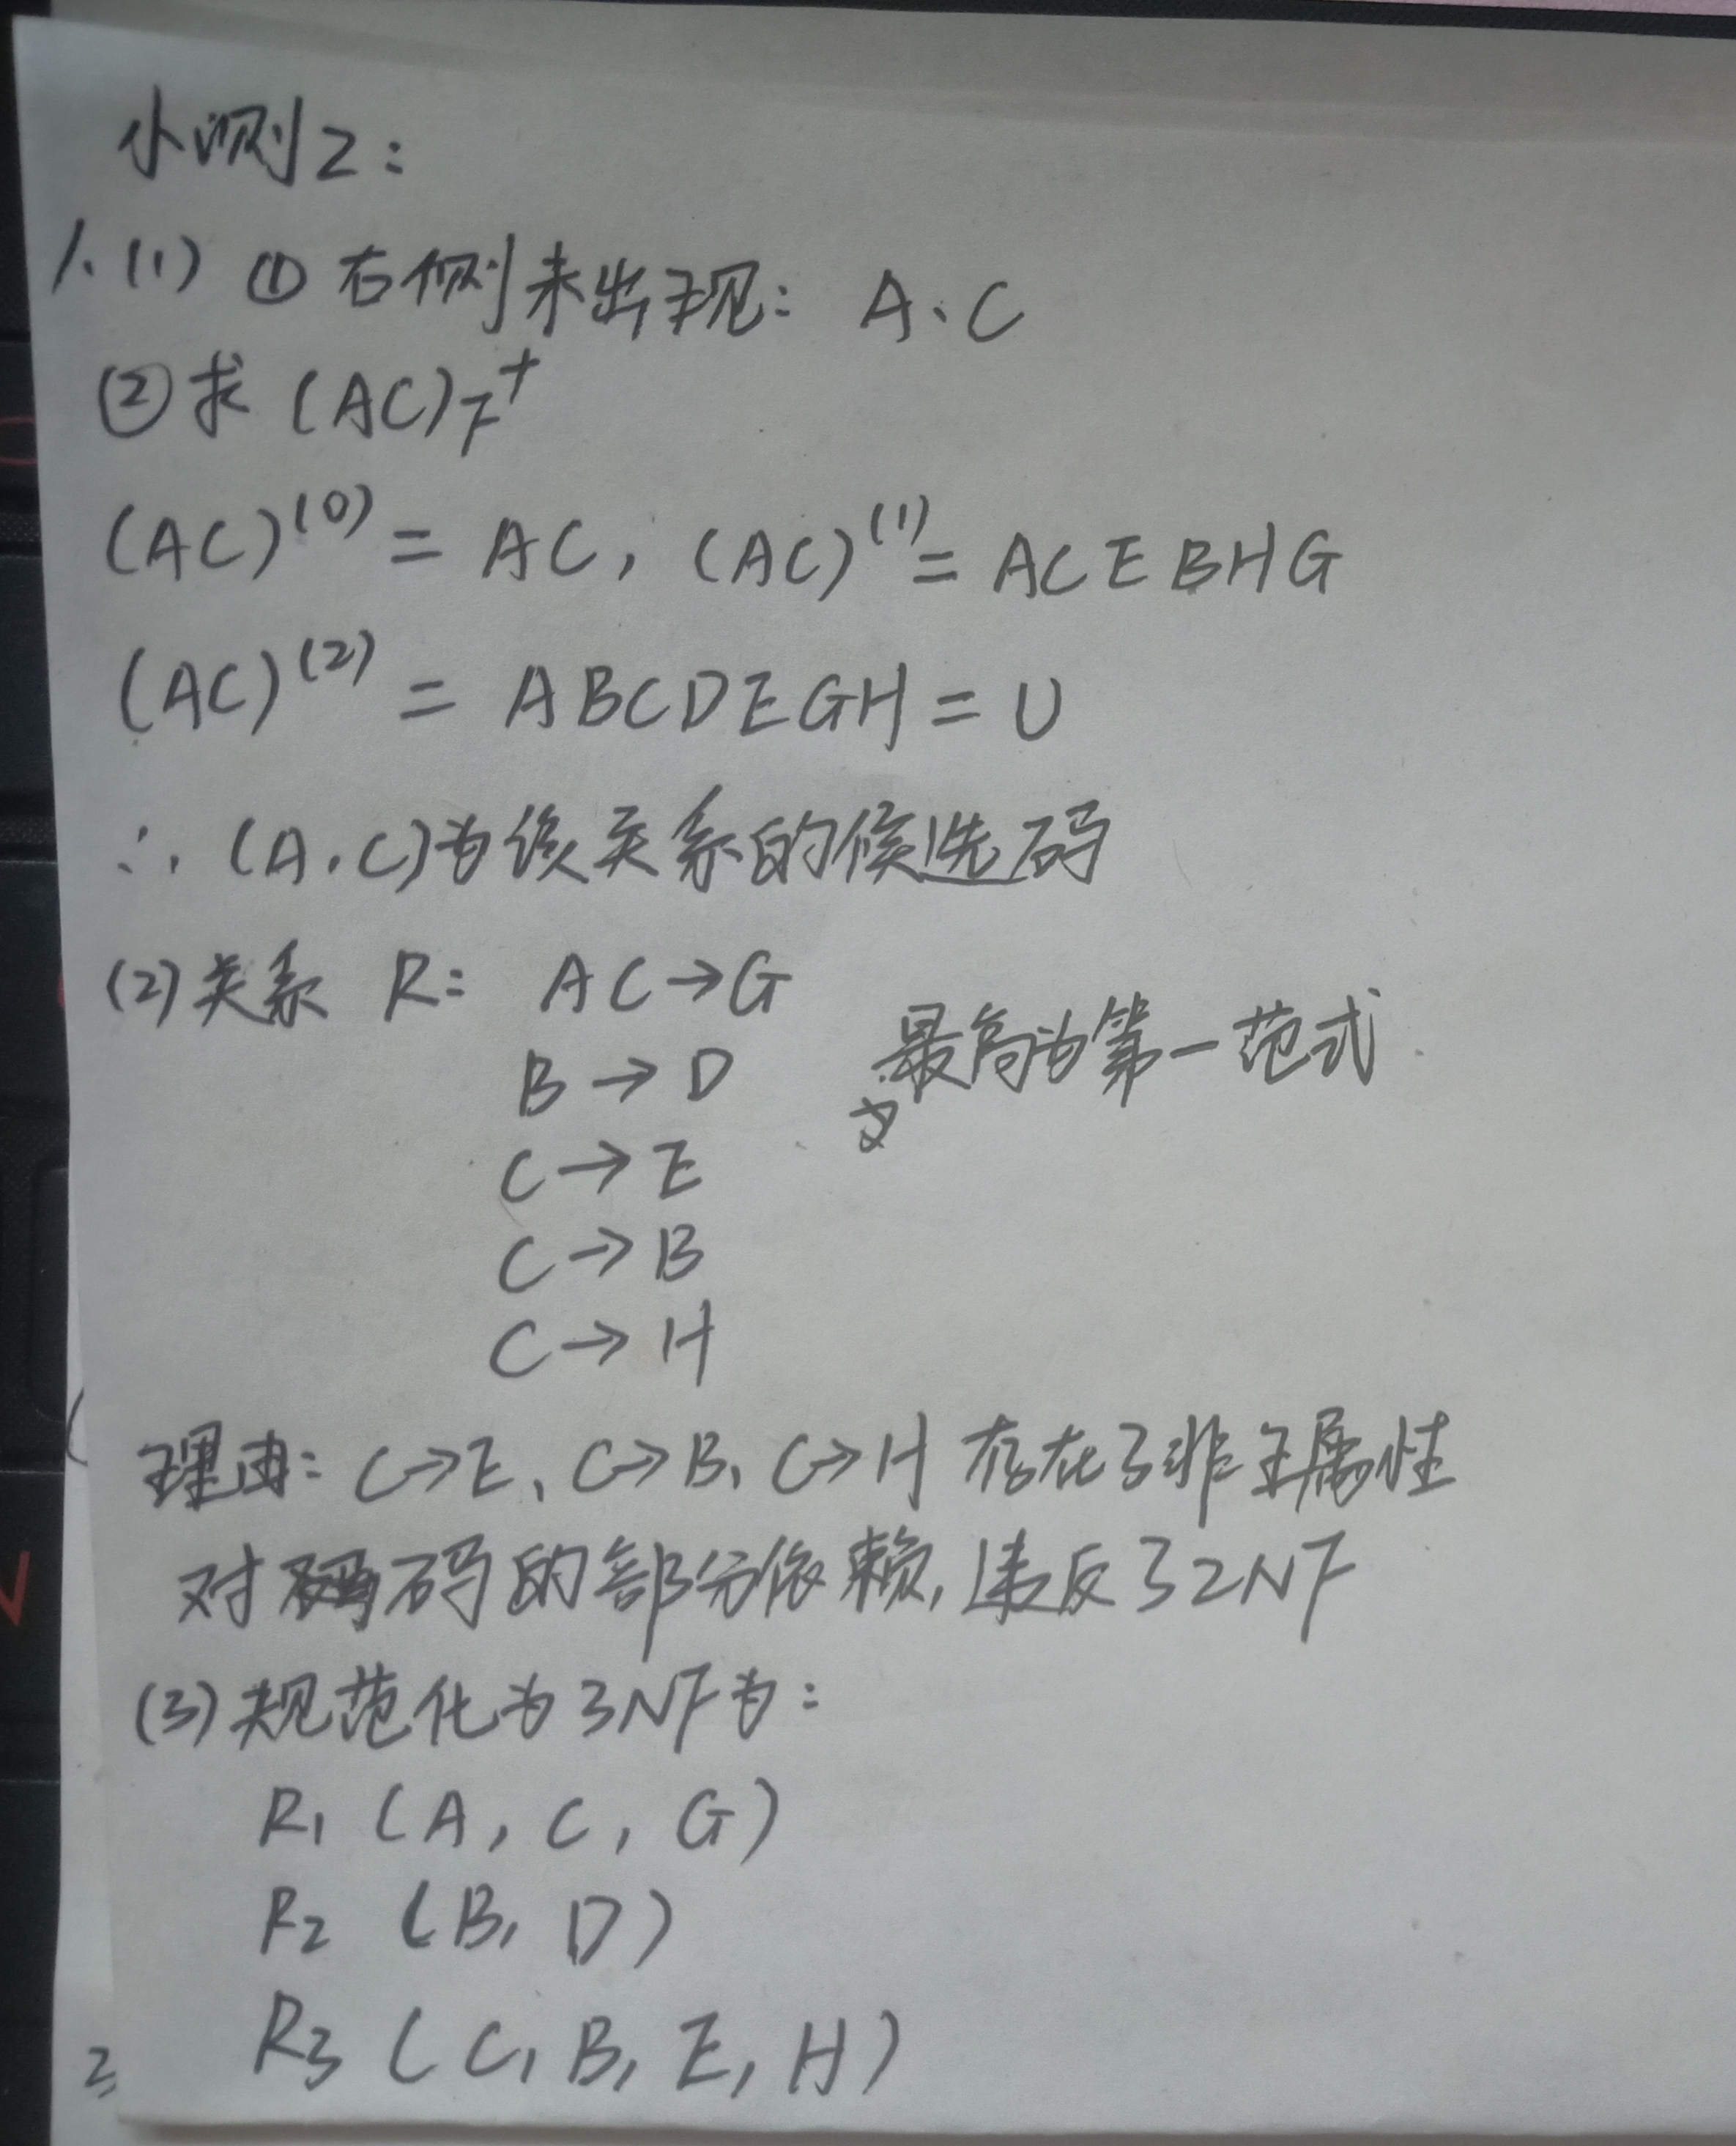 小测2:
1.(1) ① 右侧未出现: A、C
② 求 (AC)F+
(AC)(0) = AC, (AC)(1) = ACEBHG
(AC)(2) = ABCDEGH = U
∴ (A,C)为该关系的候选码
(2) 关系 R: AC→G
B→D 最高为第一范式
C→E
C→B
C→H
理由: C→E、C→B、C→H 存在了非主属性
对码的部分依赖, 违反了2NF
(3) 规范化为3NF为:
R1 (A, C, G)
R2 (B, D)
R3 (C, B, E, H)
2